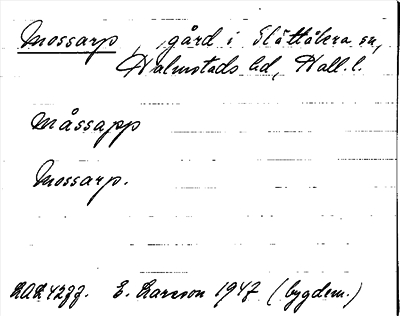 Mossarp, gård i Slättåkra sn,
Halmstads hd, Hall. l.
Måssapp
Mossarp.
E. Larsson 1947 (bygdem.)